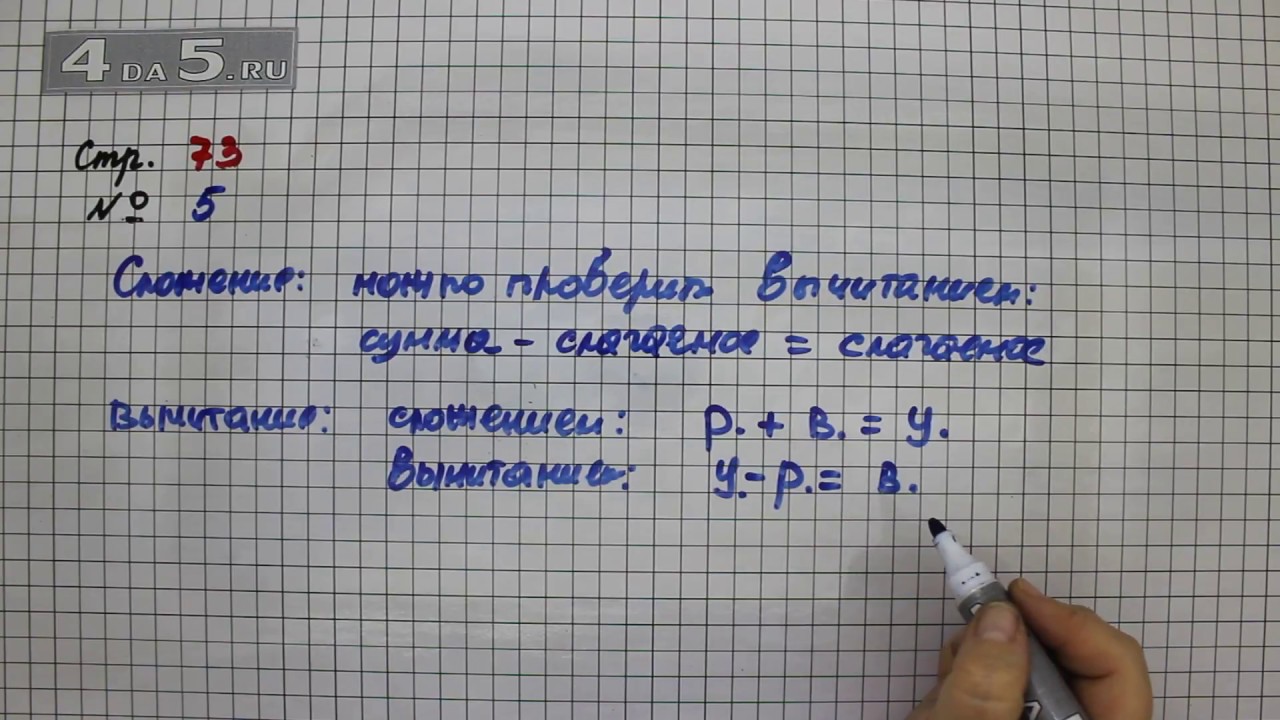 4DA5.RU
Стр. 73
№ 5
Сложение: можно проверить вычитанием:
сумма - слагаемое = слагаемое
Вычитание: сложением: р. + в. = у.
Вычитанием: у. - р. = в.